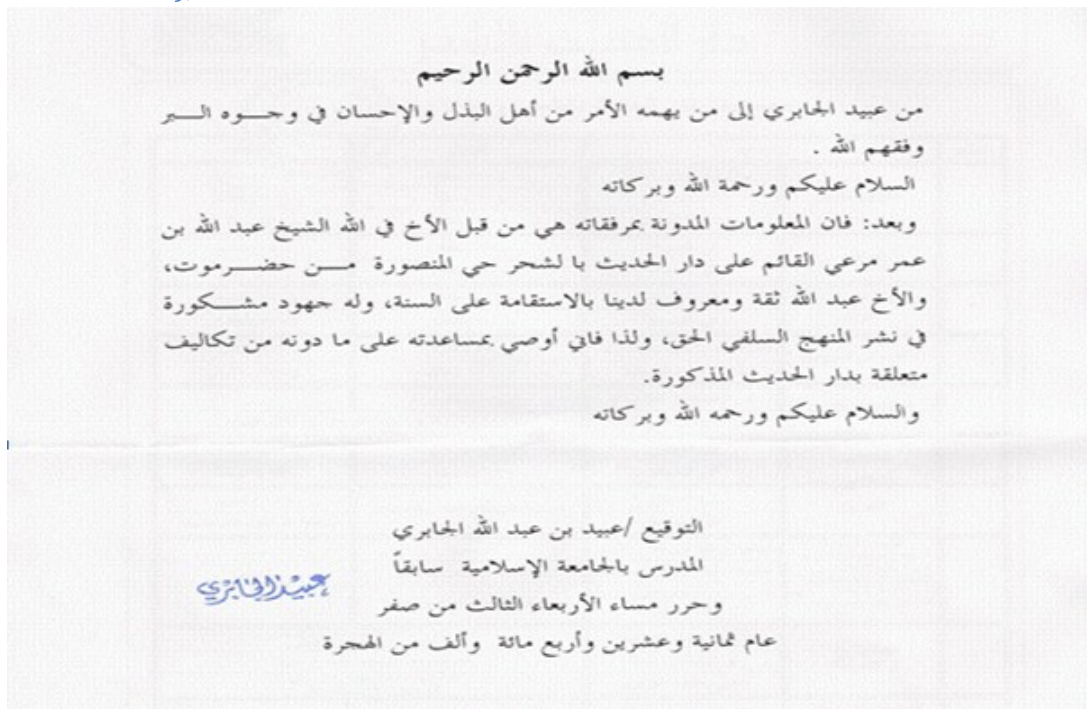 بسم الله الرحمن الرحيم
من عبيد الجابري إلى من يهمه الأمر من أهل البذل والإحسان في وجـــوه الـــبر
وفقهم الله .
السلام عليكم ورحمة الله وبركاته
وبعد: فان المعلومات المدونة بمرفقاته هي من قبل الأخ في الله الشيخ عبد الله بن
عمر مرعي القائم على دار الحديث با لشحر حي المنصورة مـــن حضـــرموت،
والأخ عبد الله ثقة ومعروف لدينا بالاستقامة على السنة، وله جهود مشـــكورة
في نشر المنهج السلفي الحق، ولذا فاني أوصي بمساعدته على ما دونه من تكاليف
متعلقة بدار الحديث المذكورة.
والسلام عليكم ورحمه الله وبركاته
التوقيع /عبيد بن عبد الله الجابري
المدرس بالجامعة الإسلامية سابقاً
عبيد الجابري
وحرر مساء الأربعاء الثالث من صفر
عام ثمانية وعشرين وأربع مائة وألف من الهجرة